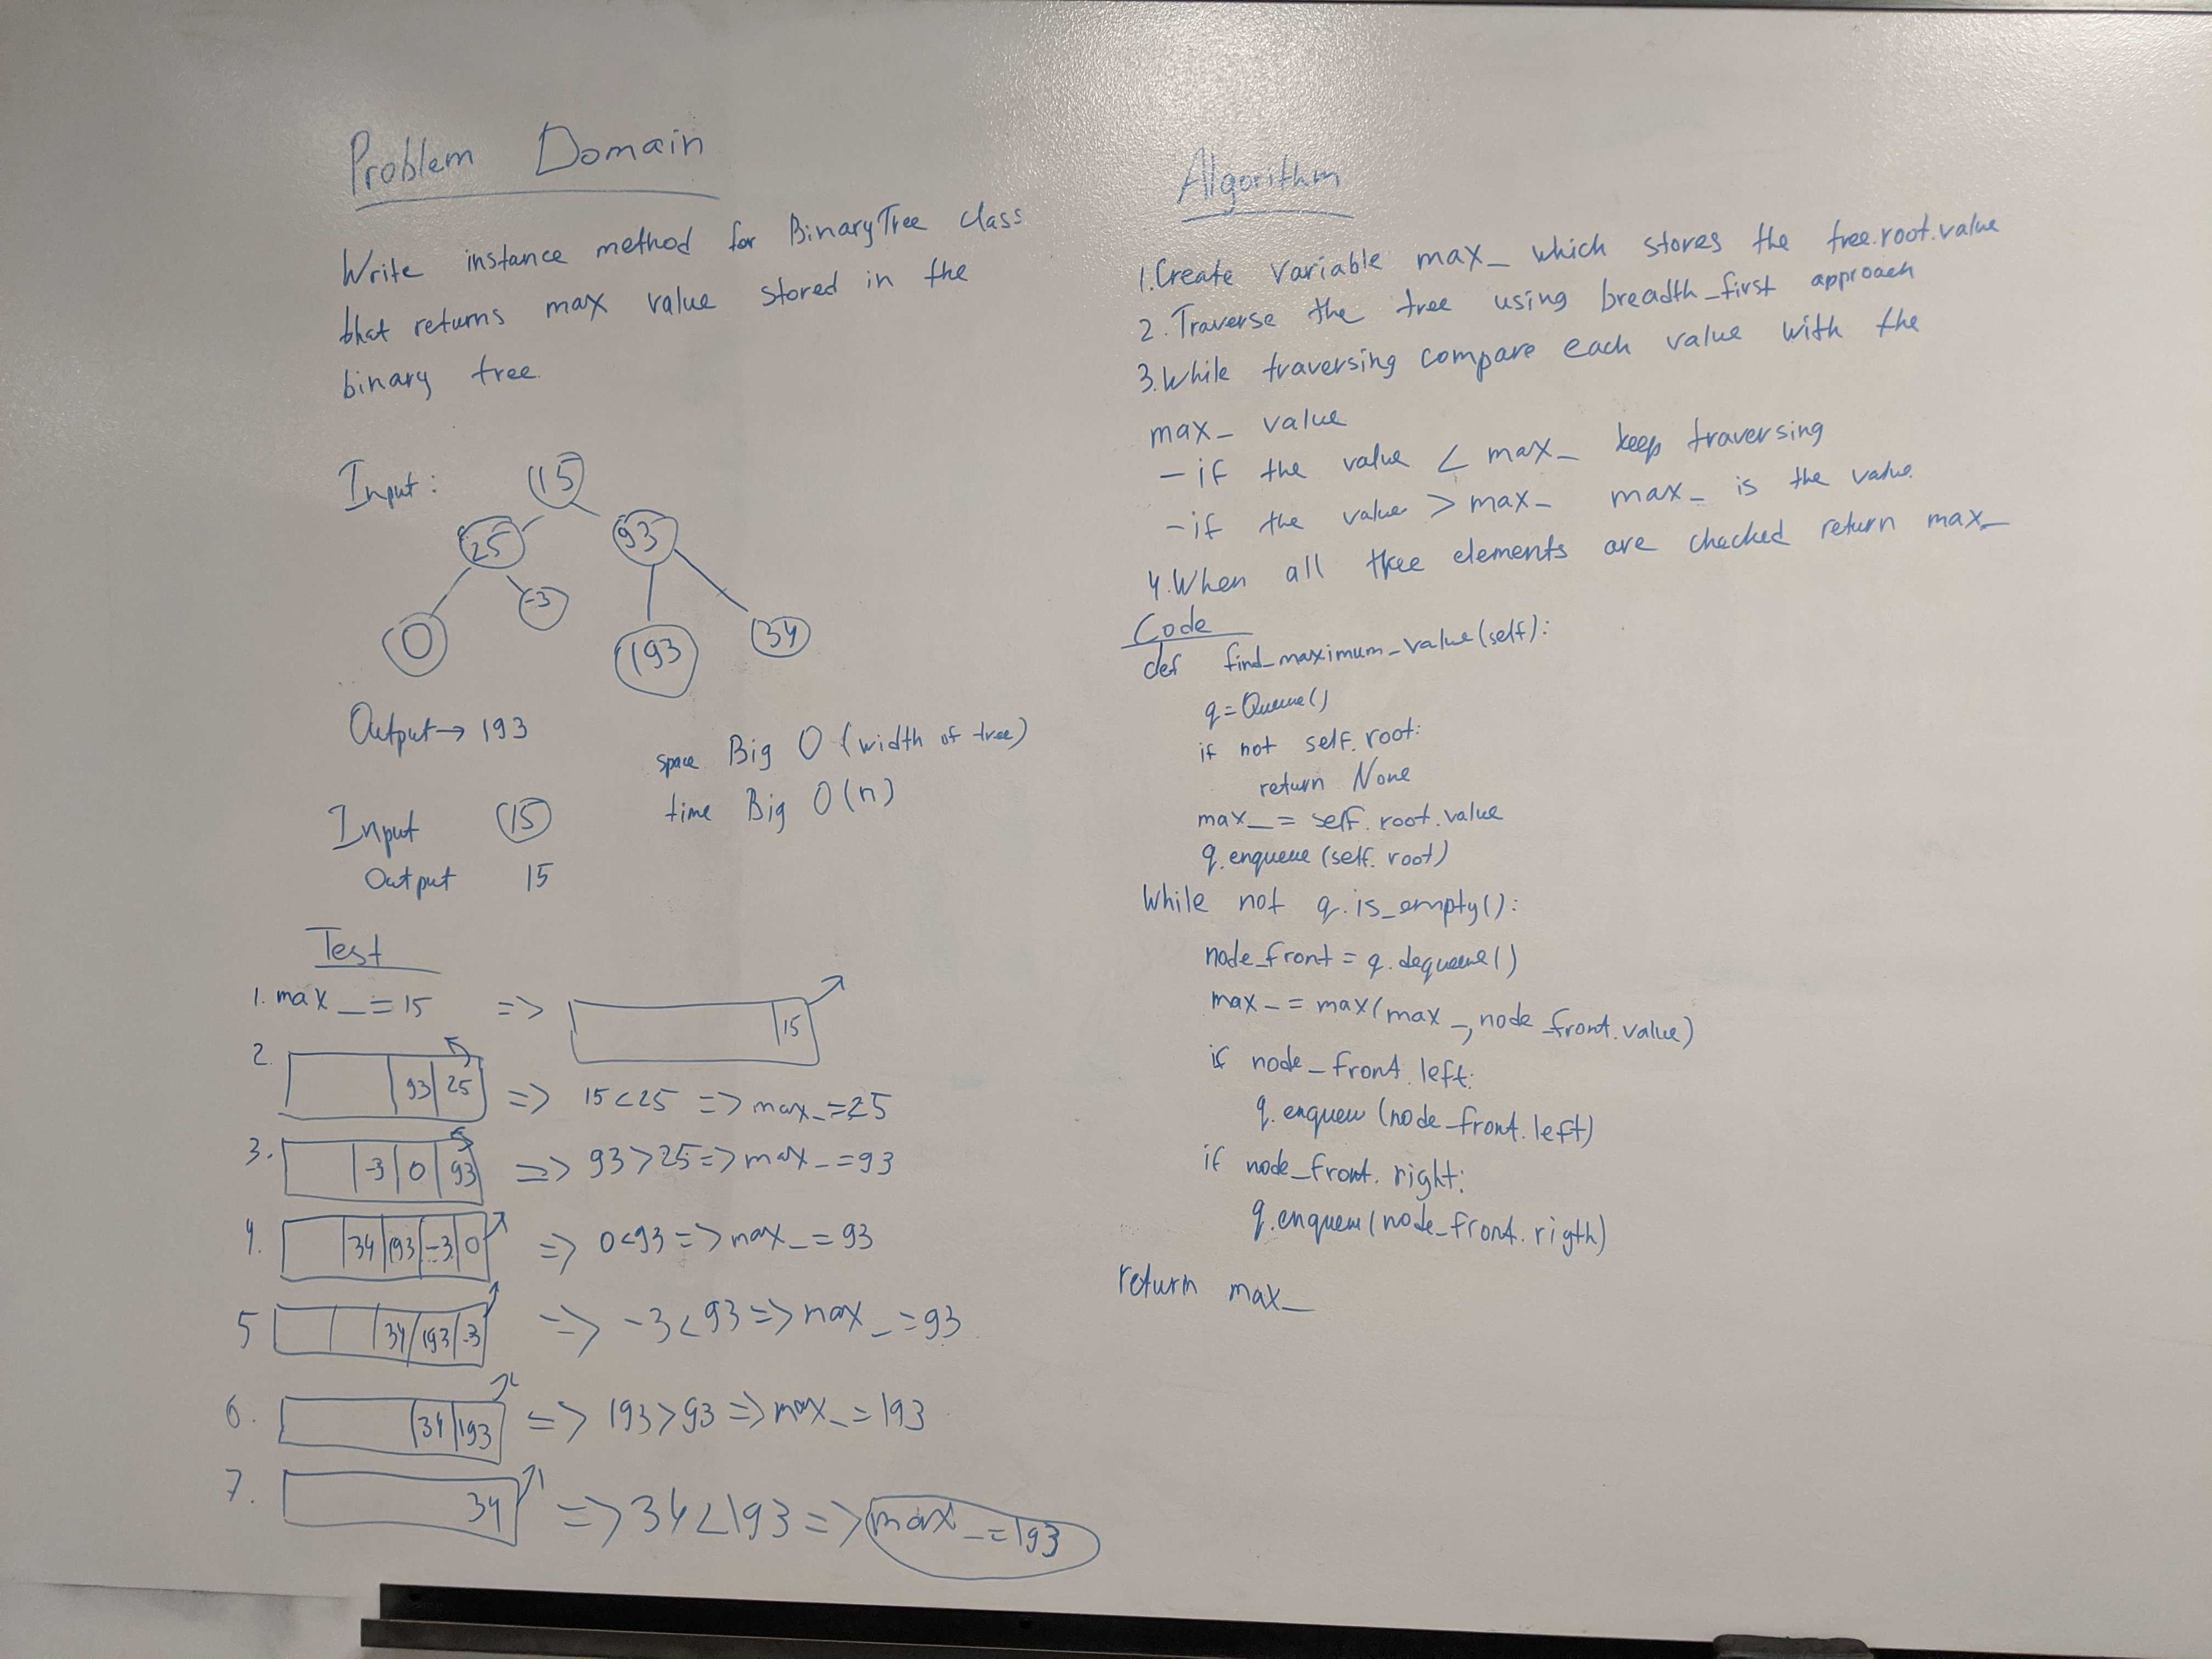 Problem Domain
Write instance method for BinaryTree class
that returns max value stored in the
binary tree.
Input:
15
25
93
0
-3
193
34
Output → 193
space Big O (width of tree)
time Big O(n)
Input 15
Output 15
Test
1. max_ = 15 => 15
2. 93 25 => 15<25 => max_=25
3. -3 0 93 => 93>25=>max_=93
4. 34 193 -3 0 => 0<93=>max_=93
5 34 193 -3 => -3<93=>max_=93
6. 34 193 => 193>93=>max_=193
7. 34 => 34<193=>max_=193
Algorithm
1.Create variable max_ which stores the tree.root.value
2.Traverse the tree using breadth_first approach
3.While traversing compare each value with the
max_ value
- if the value < max_ keep traversing
- if the value > max_ max_ is the value.
4.When all thee elements are checked return max_
Code
def find_maximum_value(self):
q=Queue()
if not self.root:
return None
max_ = self.root.value
q.enqueue(self.root)
While not q.is_empty():
node_front = q.dequeue()
max_ = max(max_, node_front.value)
if node_front.left:
q.enqueu(node_front.left)
if node_front.right:
q.enqueue(node_front.rigth)
return max_